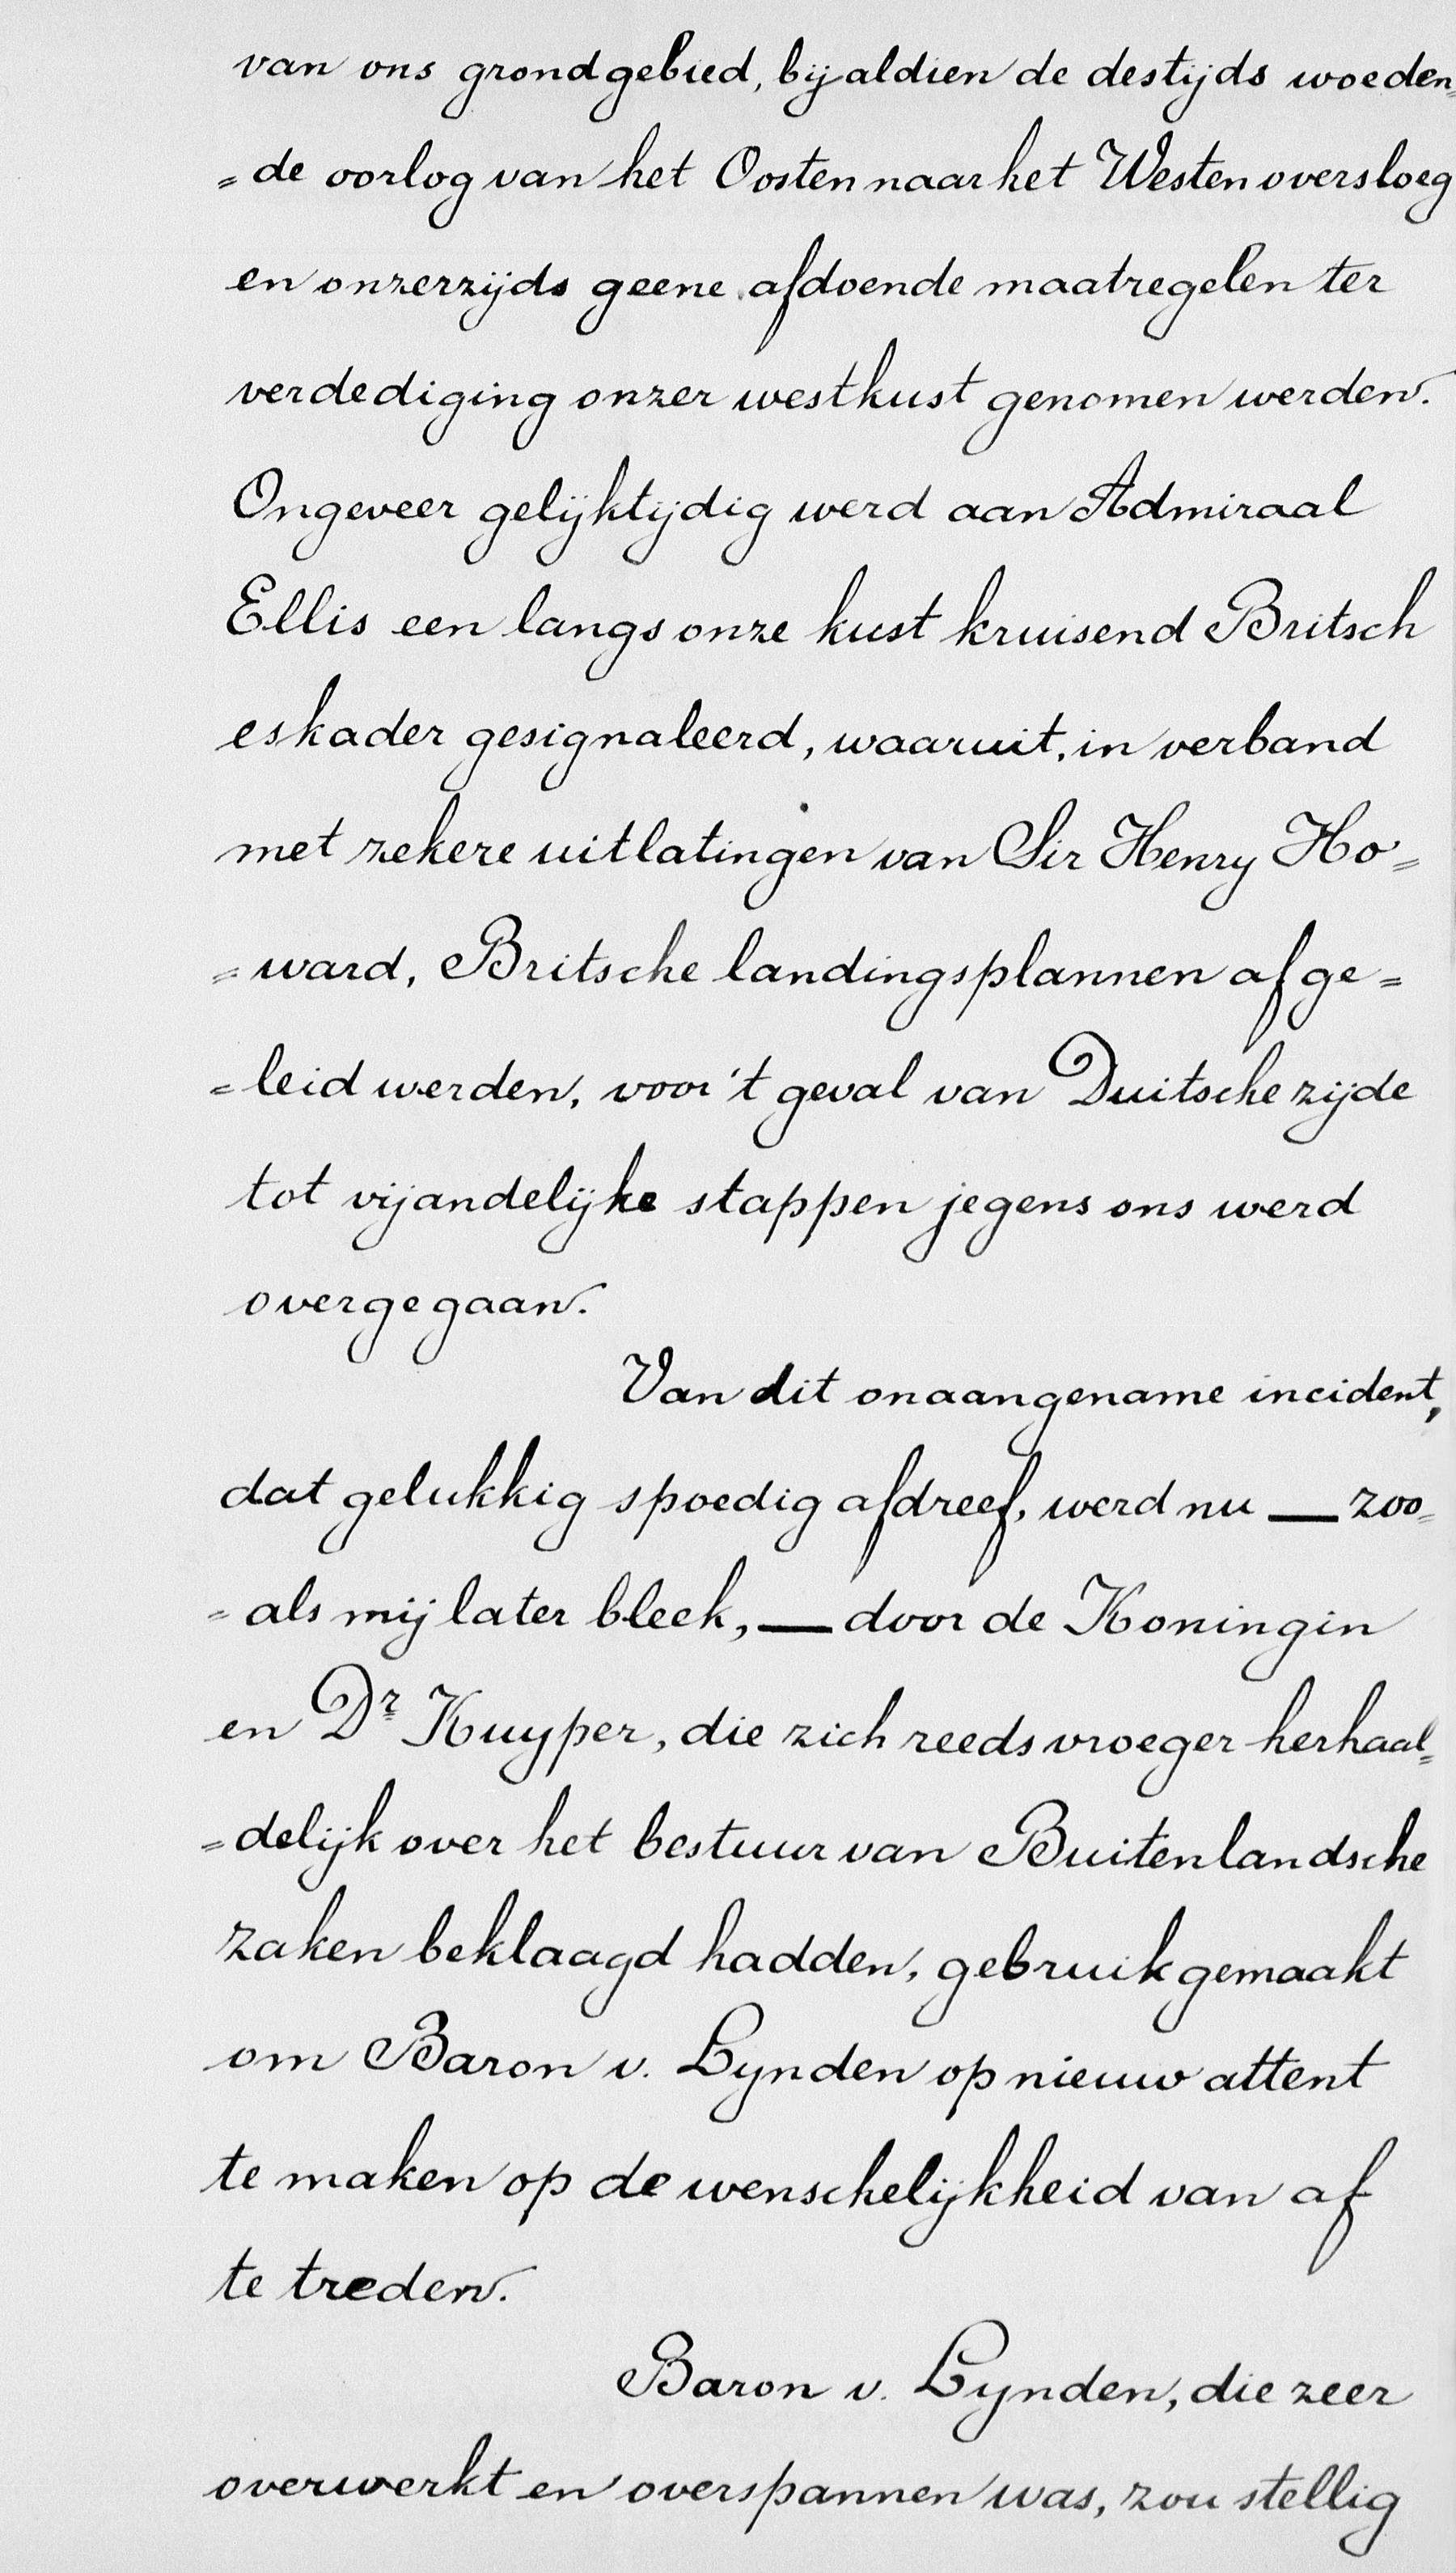 van ons grondgebied, bijaldien de destijds woeden„
„de oorlog van het Oosten naar het Westen oversloeg
en onzerzijds geene afdoende maatregelen ter
verdediging onzer westkust genomen werden.
Ongeveer gelijktijdig werd aan Admiraal
Ellis een langs onze kust kruisend Britsch
eskader gesignaleerd, waaruit, in verband
met zekere uitlatingen van Sir Henry Ho=
=ward, Britsche landingsplannen afge=
=leid werden, voor 't geval van Duitsche zijde
tot vijandelijke stappen jegens ons werd
overgegaan.
Van dit onaangename incident,
dat gelukkig spoedig afdreef, werd nu — zoo=
=als mij later bleek, — door de Koningin
en Dr Kuyper, die zich reeds vroeger herhaal=
=delijk over het bestuur van Buitenlandsche
zaken beklaagd hadden, gebruik gemaakt
om Baron v. Lynden op nieuw attent
te maken op de wenschelijkheid van af
te treden.
Baron v. Lynden, die zeer
overwerkt en overspannen was, zou stellig